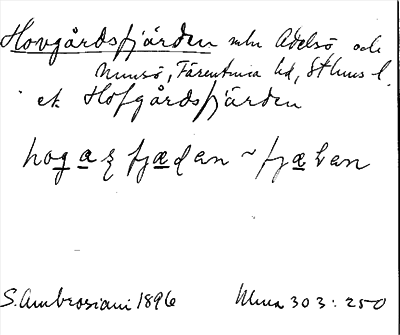 Hovgårdsfjärden mln Adelsö och
Munsö, Färentuna hd, Sthms l.
ek Hofgårdsfjärden
hogaʒ fjædan ~ fjæLan
S. Ambrosiani 1896 Ulma 303:250